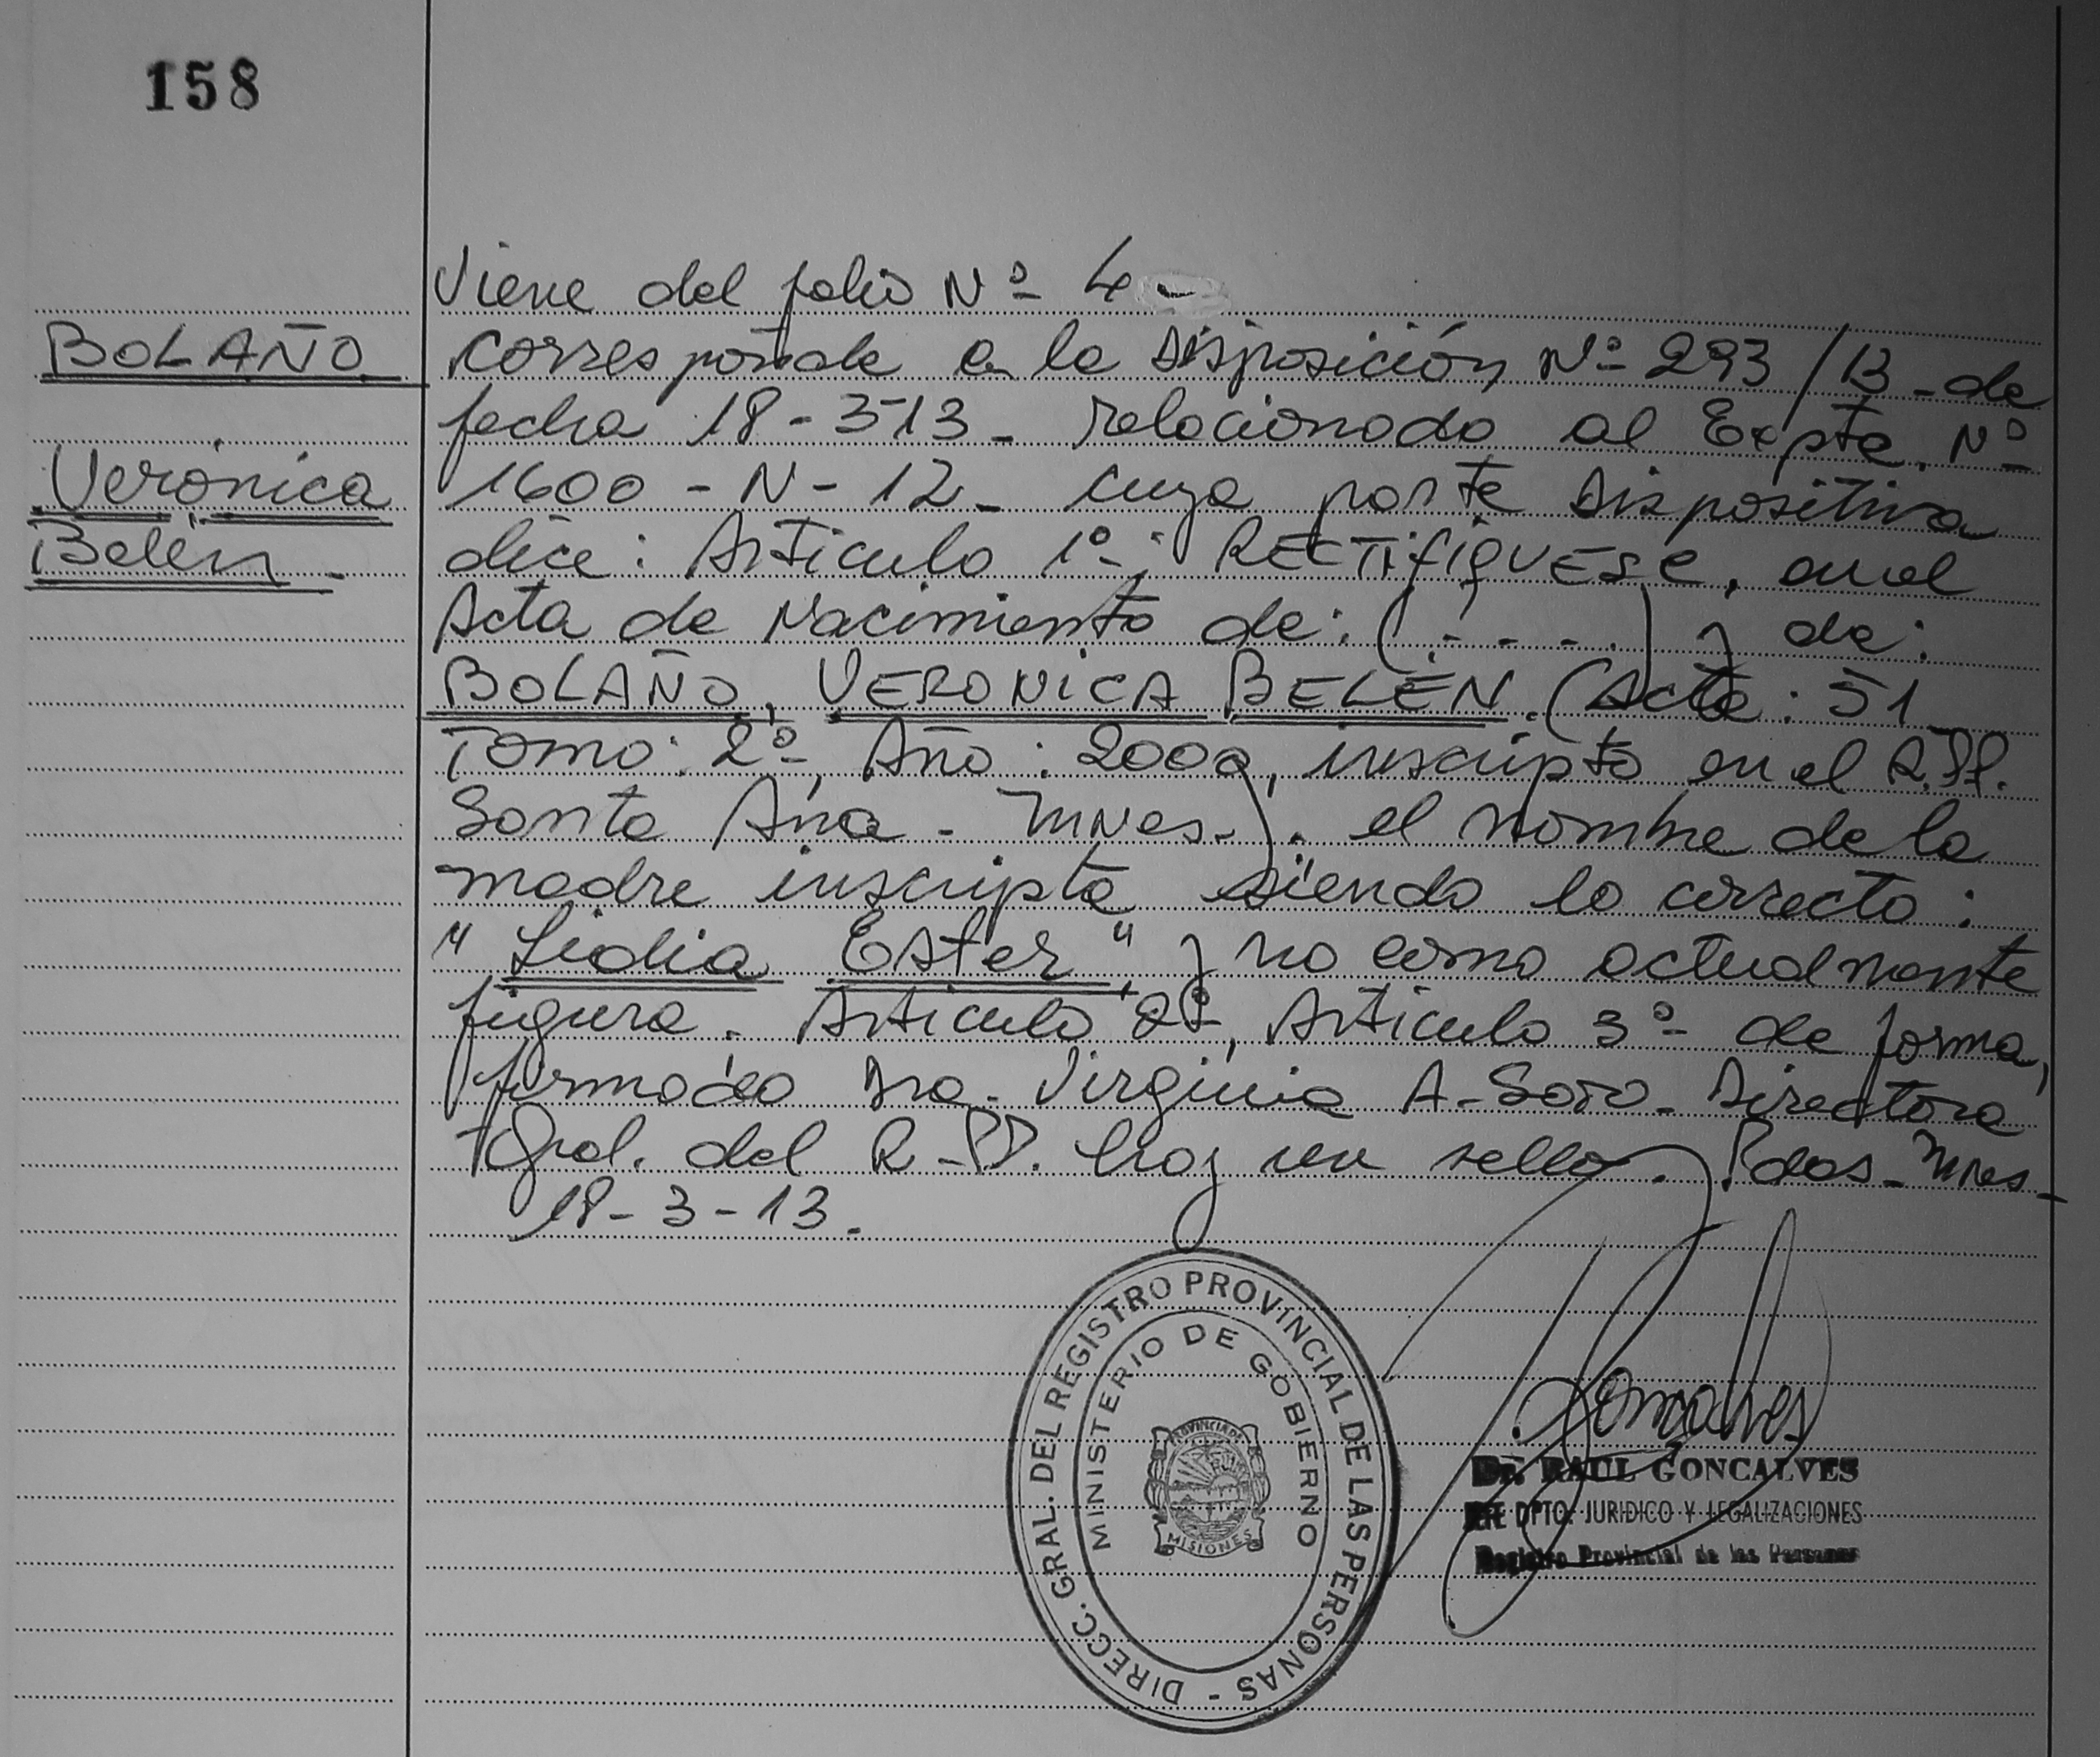 158
Viene del folio Nº 4-
BOLAÑO
Verónica
Belén -
corresponde a la Disposición Nº 293/13 - de
fecha 18-3-13 - relacionado al Expte. Nº
1600 - N - 12 - cuya parte Dispositiva
dice: Artículo 1º: RECTIFIQUESE, en el
Acta de Nacimiento de: (- - - -) y de:
BOLAÑO, VERONICA BELÉN. (Acta: 51
Tomo: 2º, Año: 2000, inscripto en el R.PP.
Santa Ana - Mnes-). el nombre de la
madre inscripta siendo lo correcto:
"Lidia Ester", y no como actualmente
figura. Artículo 2º, Artículo 3º de forma,
firmado Dra. Virginia A. Soto - Directora
Gral. del R-PP. hay un sello. Pdas - Mnes -
18-3-13.
DIRECC. GRAL. DEL REGISTRO PROVINCIAL DE LAS PERSONAS -
MINISTERIO DE GOBIERNO
PROVINCIA DE
MISIONES
Goncalves
Dr. RAUL GONCALVES
JEFE DPTO. JURIDICO Y LEGALIZACIONES
Registro Provincial de las Personas